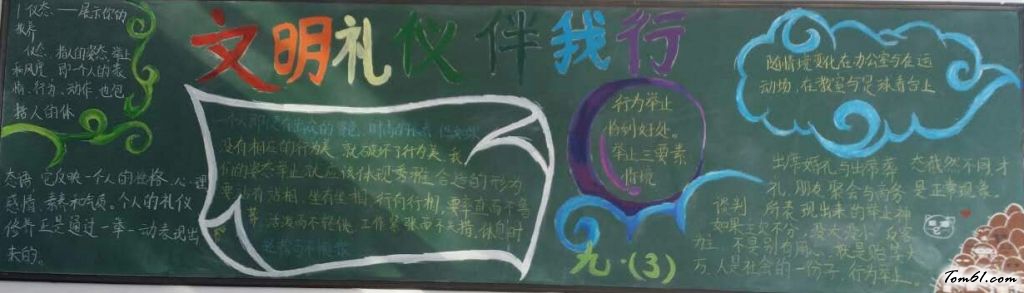 文明礼仪伴我行
1仪态——展示你的
教养
仪态，指人的姿态、举止
和风度，即一个人的表
情、行为、动作，也包
括人的体
态语，它反映一个人的性格、心理
感情、素养和气质。个人的礼仪
修养正是通过一举一动表现出
来的。
没有相应的行为美，就破坏了行为美，我
们的姿态举止就应该体现秀雅合适的行为
要站有站相，坐有坐相，行有行相，要率直而不鲁
莽，活泼而不轻佻，工作紧张而不失措，休息时
行为举止
恰到好处。
举止三要素
情境
随情境变化在办公室与在运
动场，在教室与足球看台上
出席婚礼与出席葬
礼，朋友聚会与商务
谈判，所表现出来的举止神
态截然不同才
是正常现象。
如果主次不分
万，人是社会的一份子，行为举止
九.(3)
Tom61.com